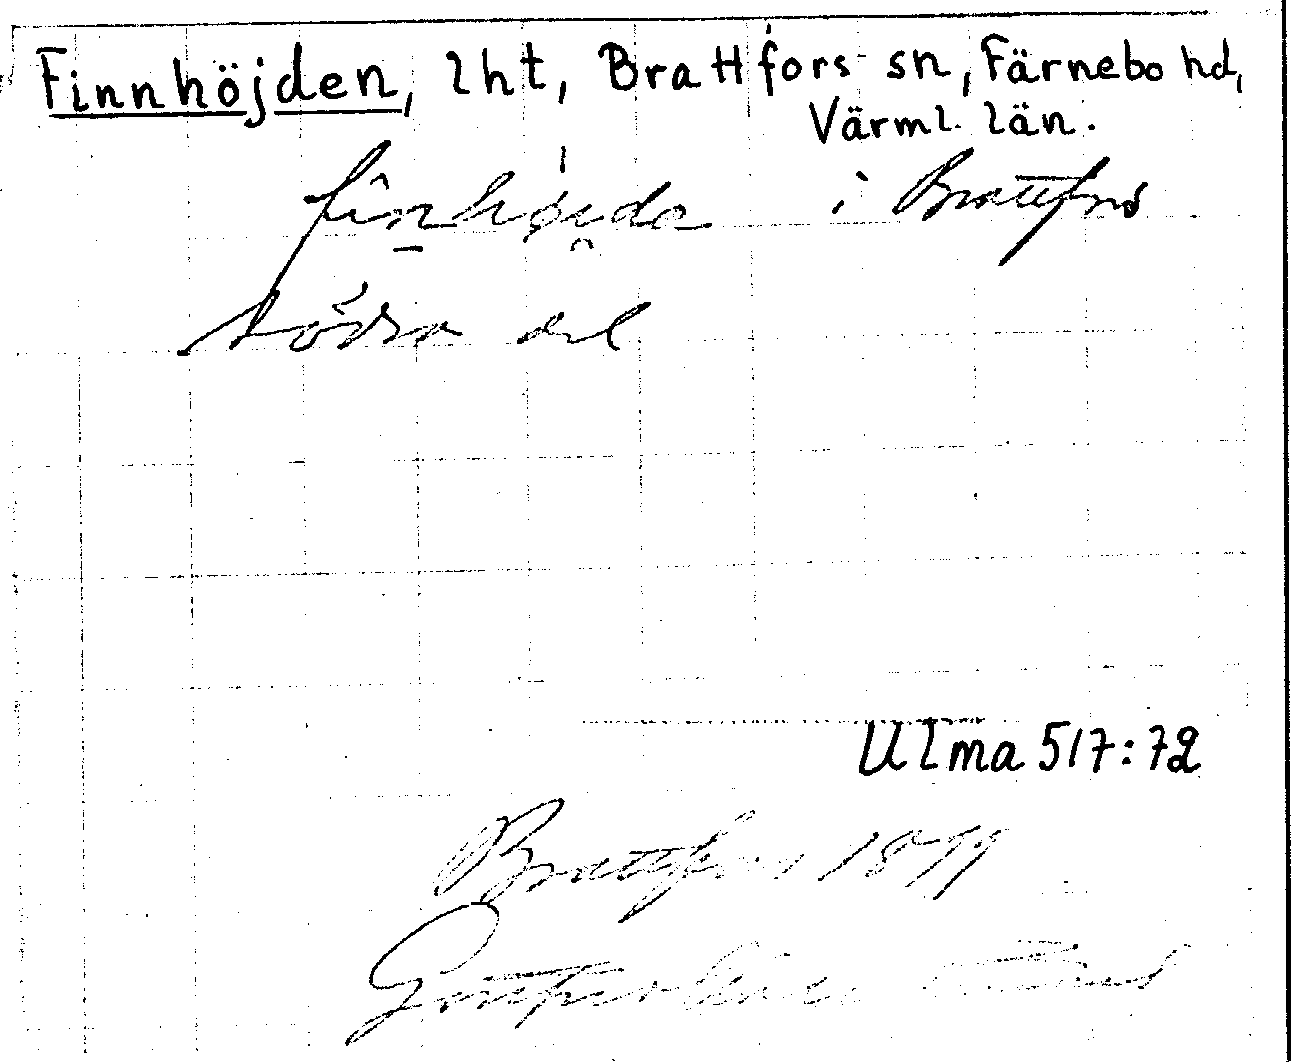 Finnhöjden, lht, Brattfors sn, Färnebo hd,
Värml. län.
finhöjda i Brattfors
södra del
Ulma 517:72
Brattfors 1879